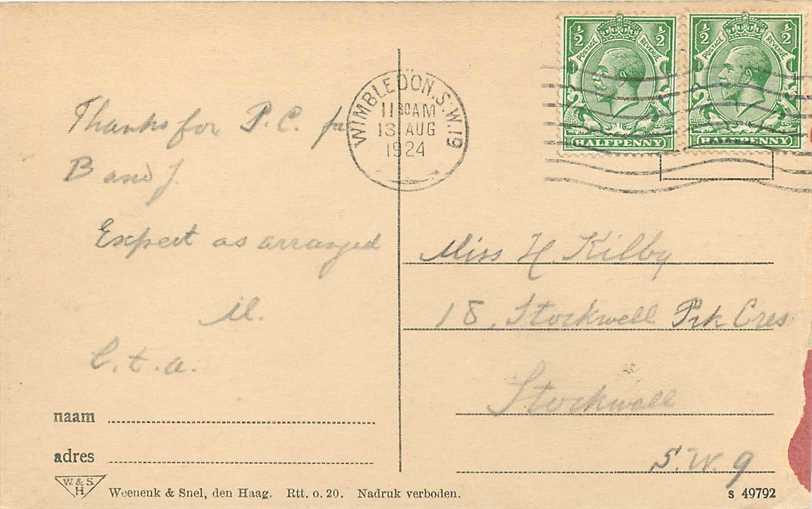 Thanks for P.C. fr
B and J.
Expect as arranged
M.
l.t.a.
naam
adres
W & S
H
Weenenk & Snel, den Haag. Rtt. o. 20. Nadruk verboden.
WIMBLEDON. S.W.19
11 30 AM
13 AUG
1924
½ POSTAGE REVENUE ½
HALFPENNY
½ POSTAGE REVENUE ½
HALFPENNY
Miss H Kilby
18, Stockwell Prk Cres
Stockwell
S.W. 9
s 49792